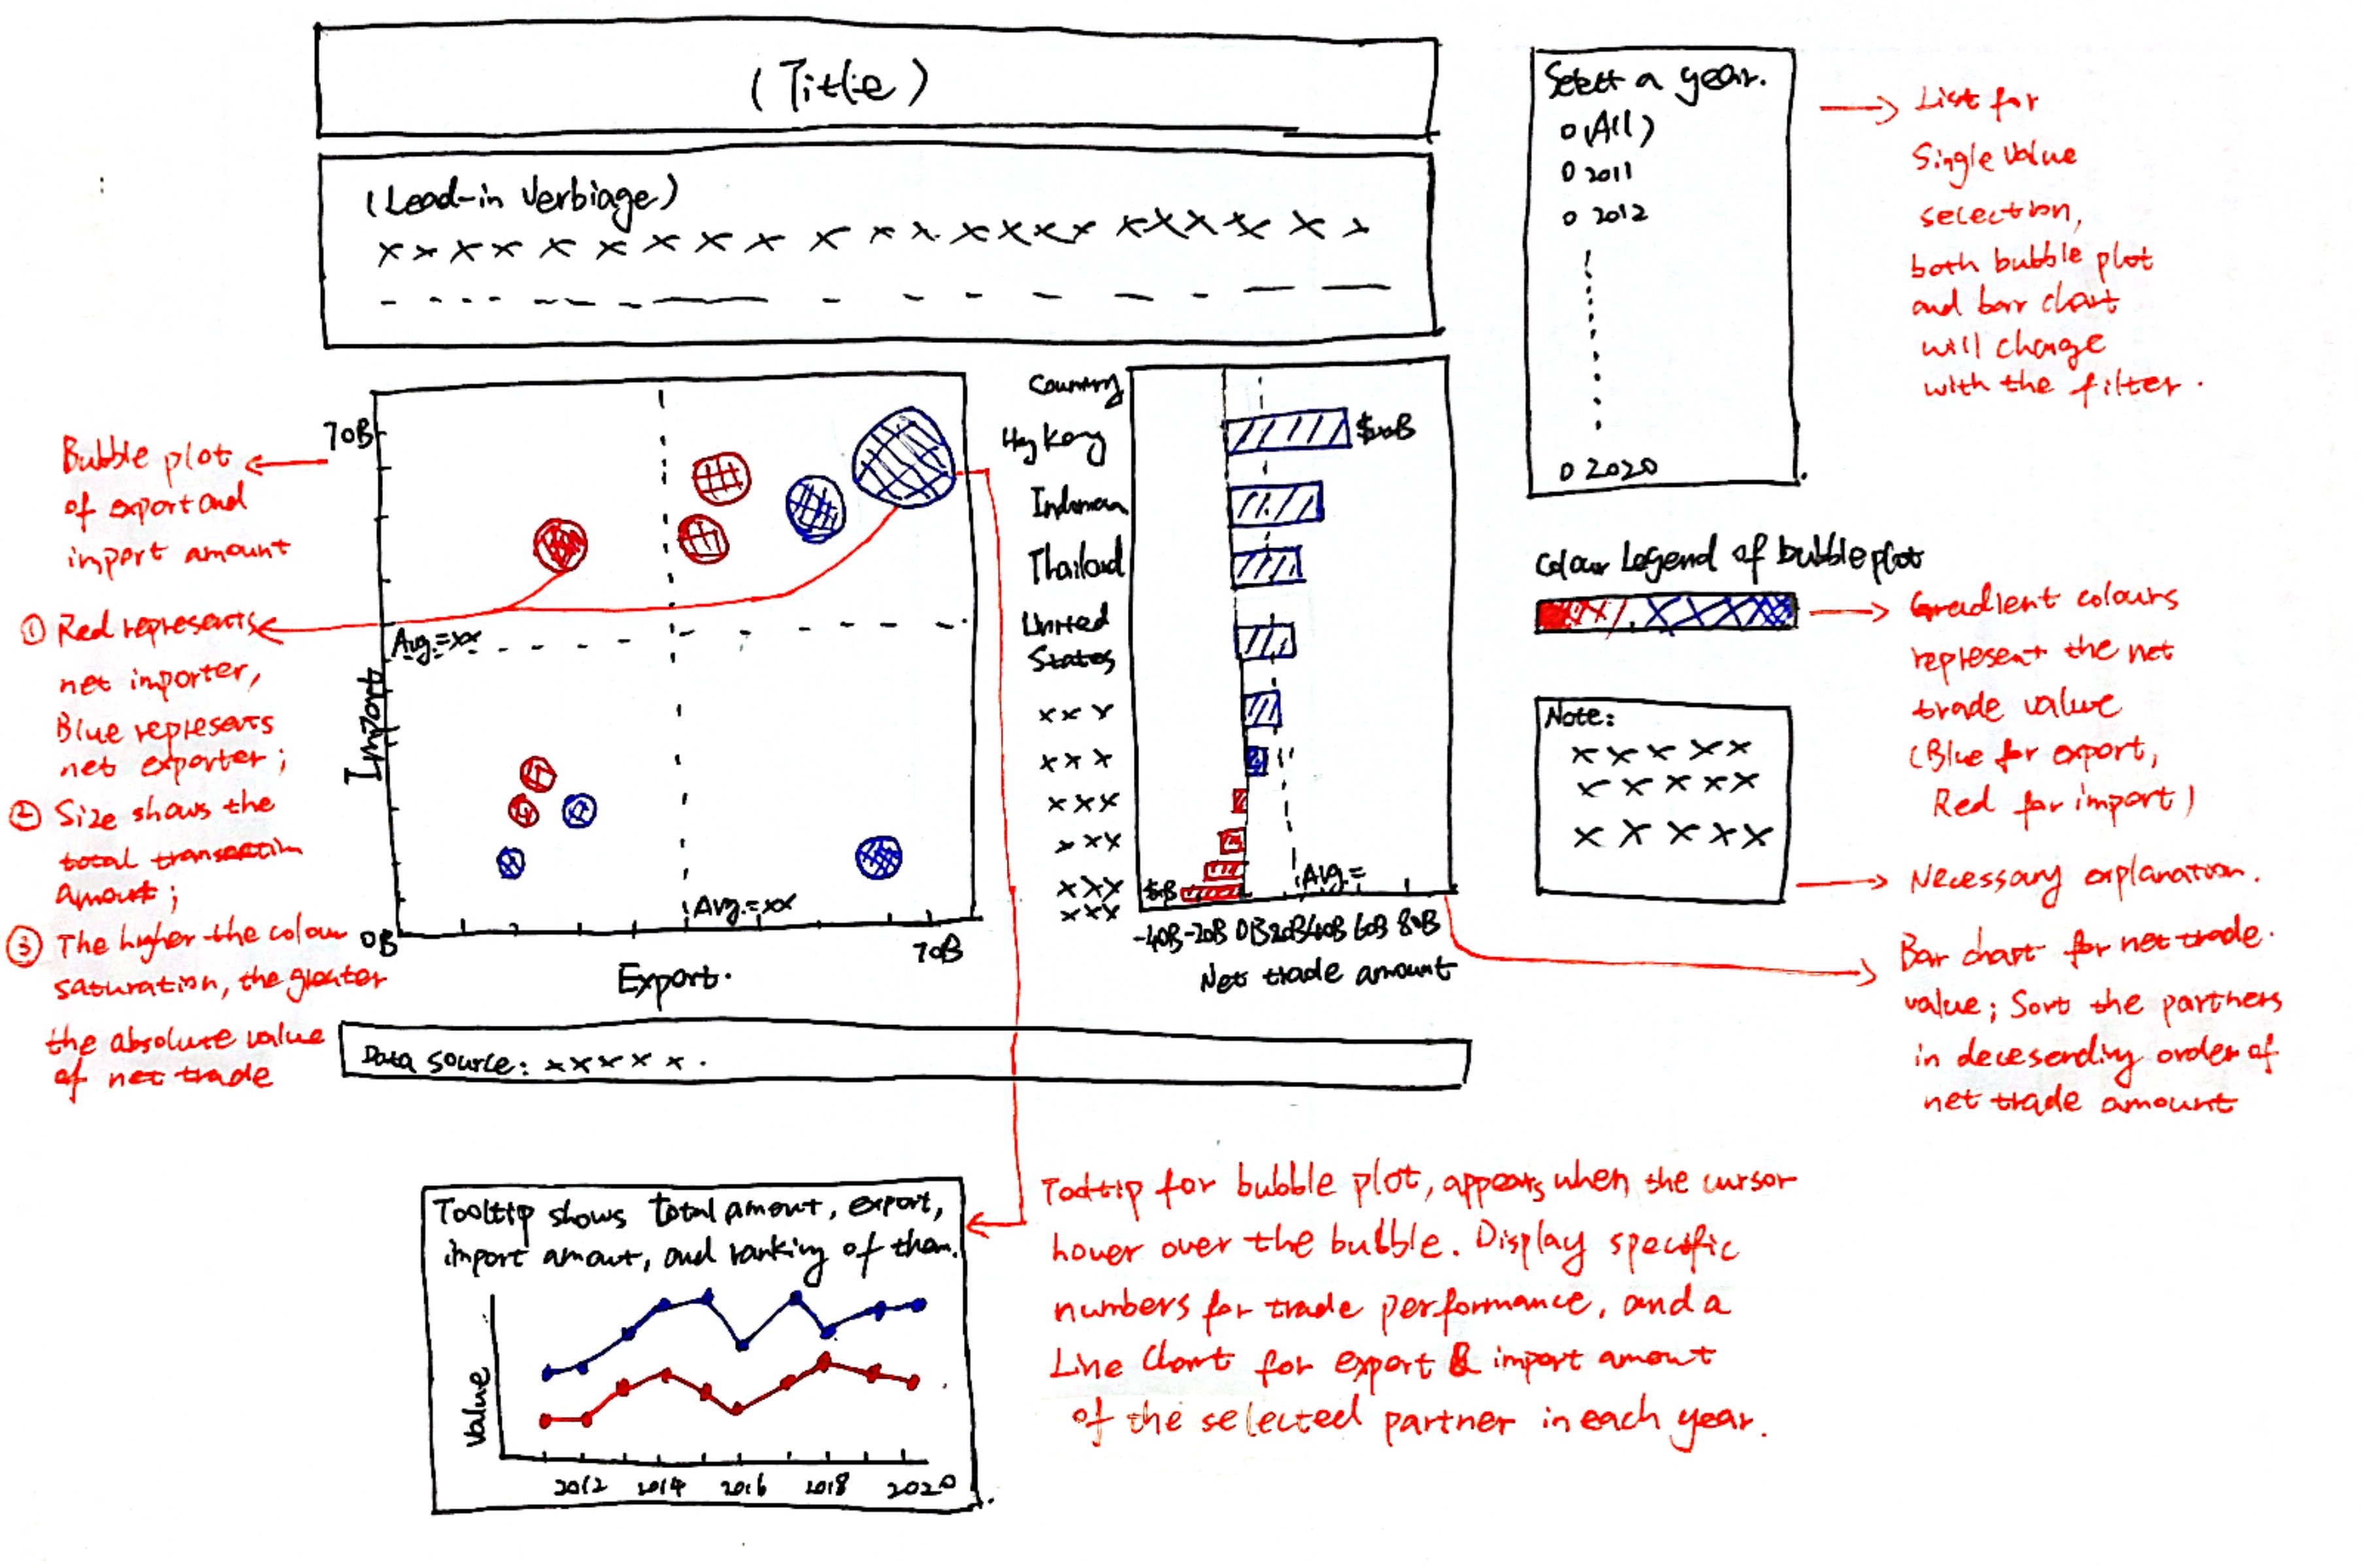 (Title)
(Lead-in Verbiage)
x x x x x x x x x x x x x x x x x x x x x
Select a year.
(All)
2011
2012
2020
List for
Single Value
selection,
both bubble plot
and bar chart
will change
with the filter.
Bubble plot
of export and
import amount
① Red represents
net importer,
Blue represents
net exporter;
② Size shows the
total transaction
amount;
③ The higher the colour
saturation, the greater
the absolute value
of net trade
70B
Avg.=xx
Import
Avg.=xx
0B
70B
Export.
Country
Thailand
United
States
x x x
x x x
x x x
x x x
x x x
x x x
Avg.=
-40B -20B 0B 20B 40B 60B 80B
Net trade amount
Colour Legend of bubble plot
Gradient colours
represent the net
trade value
(Blue for export,
Red for import)
Note:
x x x x x
x x x x x
x x x x x
Necessary explanation.
Bar chart for net trade.
value; Sort the partners
in decesending order of
net trade amount
Data source: x x x x x.
Tooltip shows total amount, export,
import amout, and ranking of them.
Value
2012 2014 2016 2018 2020
Tooltip for bubble plot, appears when the cursor
hover over the bubble. Display specific
numbers for trade performance, and a
Line Chart for export & import amout
of the selected partner in each year.